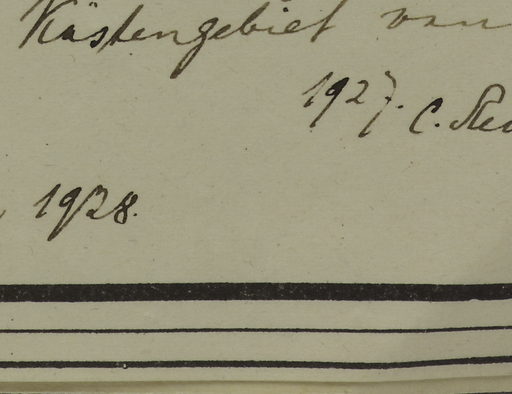 Küstengebiet von
1927. C.
1928.